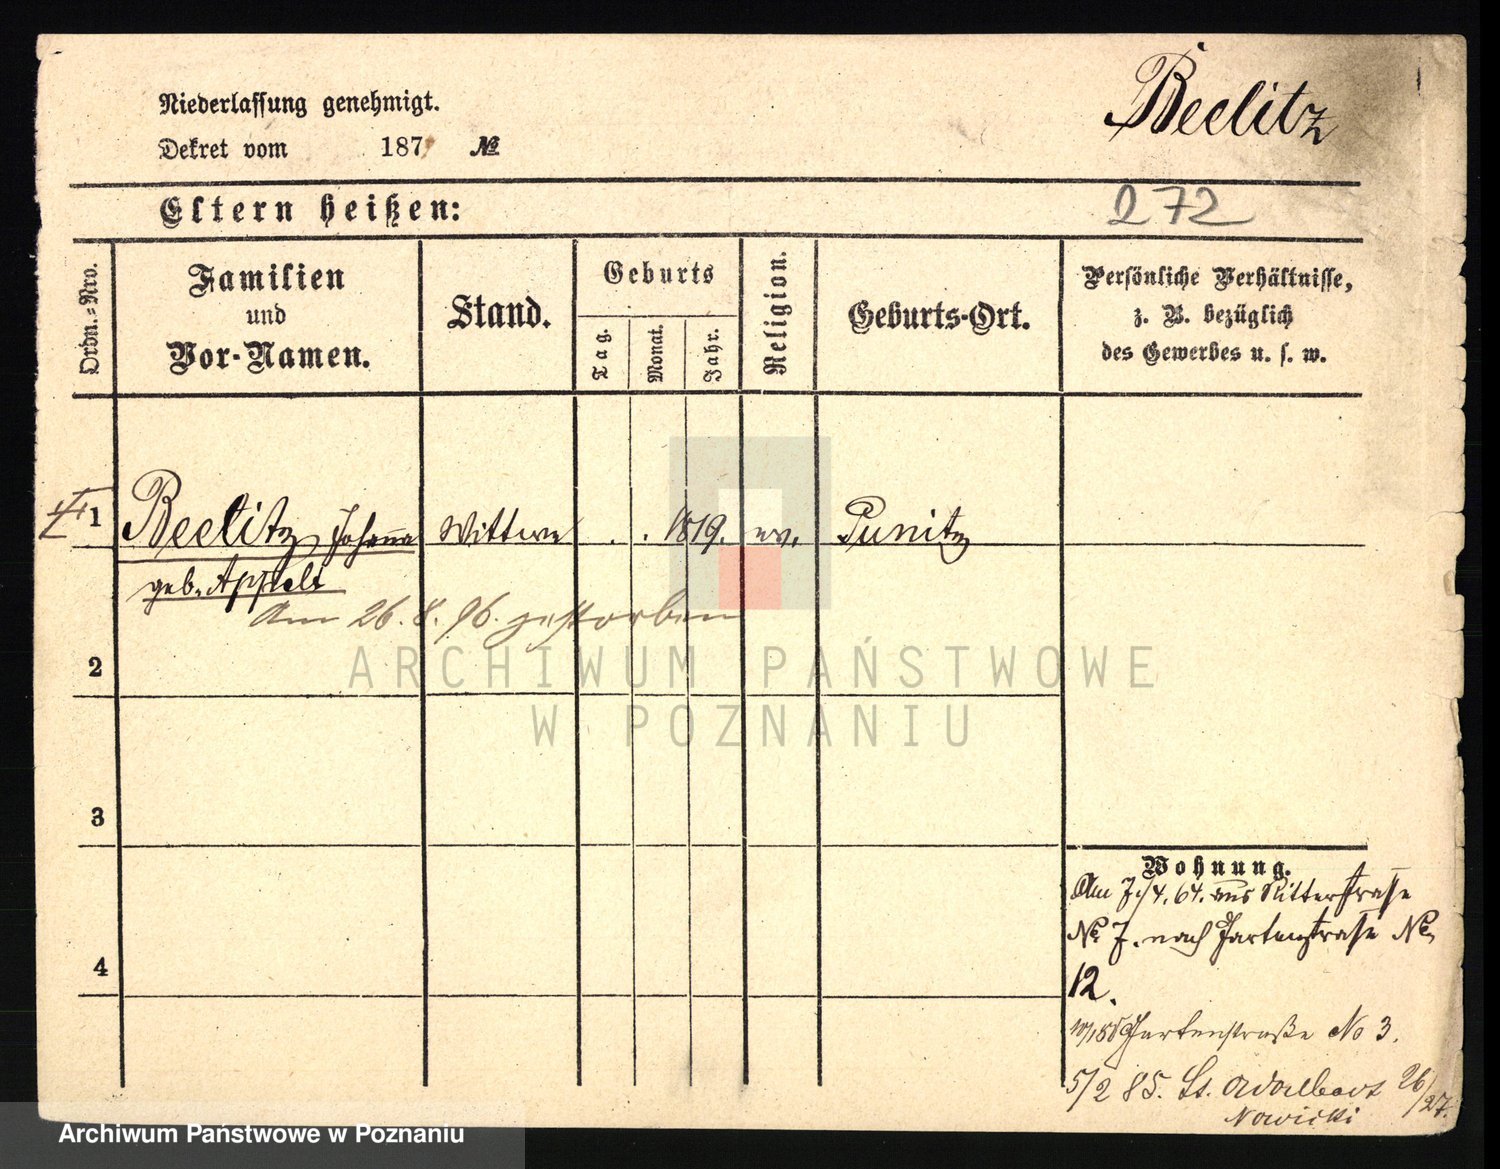 Beelitz
Niederlassung genehmigt.
Dekret vom 187 №
Eltern heißen:
272
Ordn.-Nro.
Familien
und
Vor-Namen.
Stand.
Geburts
Tag.
Monat.
Jahr.
Religion.
Geburts-Ort.
Persönliche Verhältnisse,
z. B. bezüglich
des Gewerbes u. s. w.
1 Beelitz Johanna Wittwe . . 1819. ev. Punitz
geb. Appelt
Am 26.8.96. gestorben
2
3
4
Wohnung.
Am 7./4. 64. aus Ritterstraße
№ 7. nach Gartenstraße №
12.
Gartenstraße No 3.
5/2 85. St. Adalbert 26/27.
Nowicki
ARCHIWUM PAŃSTWOWE
W POZNANIU
Archiwum Państwowe w Poznaniu